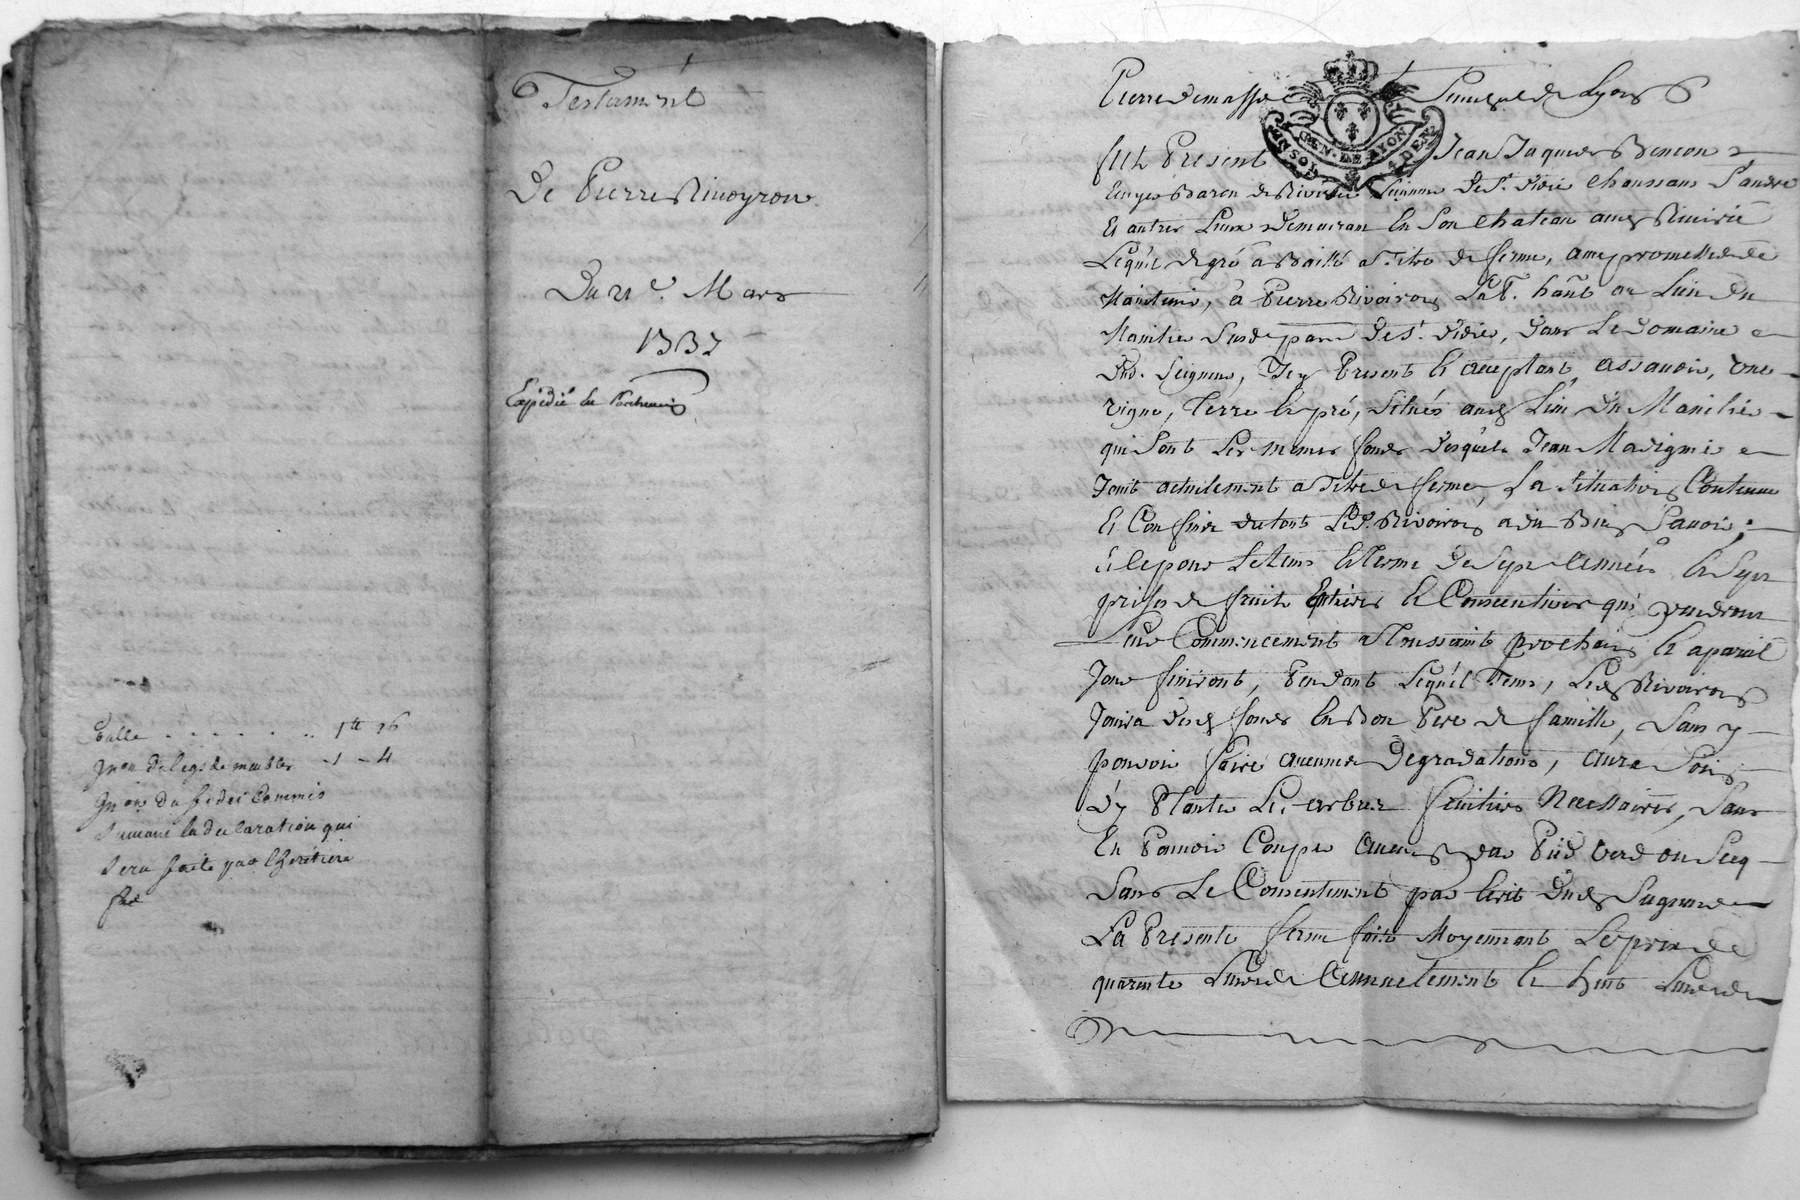 Testament
De Pierre Rivoyron
Du 21e. Mars
1737
Expedié en Parchemin
Salle . . . . . . . 1tt 16
Jnon de legs de meubles - 1 - 4
Jnon du fidei Commis
suivant la declaration qui
sera faite par lheritiere
Pierre de masso Seneschal de Lyon
GEN. DE LYON
fut Present Jean Jaques
Baron de Riverie St. Didie Chaussans St andre
Et autres Lieux Demeurant En Son Chateau aud Riverie
Lequel de gré a Baillé a Titre de ferme, avec promesse de
Maintenir, a Pierre Rivoiron Lab. habt au Lieu du
de St. Didie, dans Le Domaine
Dud. Seigneur, Icy Present Et acceptant, assavoir, une
vigne, Terre Et pré, Situés aud Lieu du
qui Sont Les memes fonds desquels Jean
Jouit actuelement a Titre de ferme, La Situation Contenue
Et Confins du tout Led. Rivoiron a dit Bien Savoir;
Et Ce pour Le tems Et Terme de Sept années Et Sept
prises de fruits Entieres Et Consecutives qui prendront
Leur Commencement a Toussaint prochain Et a pareil
Jour finiront, Pendant Lequel Tems, Led Rivoiron
Jouira desd fonds En Bon Pere de famille, Sans y
pouvoir faire aucunes Degradations, aura Soin
d'y Planter Les arbres fruitiers Necessaires, Sans
En Pouvoir Couper aucuns par Pied verd ou Secq
Sans Le Consentement par Ecrit dud Seigneur
La Presente ferme faite Moyennant Le prix de
quarante Livres Annuelement Et huit Livres de